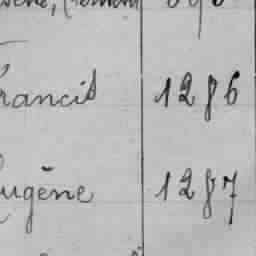 Francis 1286
Eugène 1287